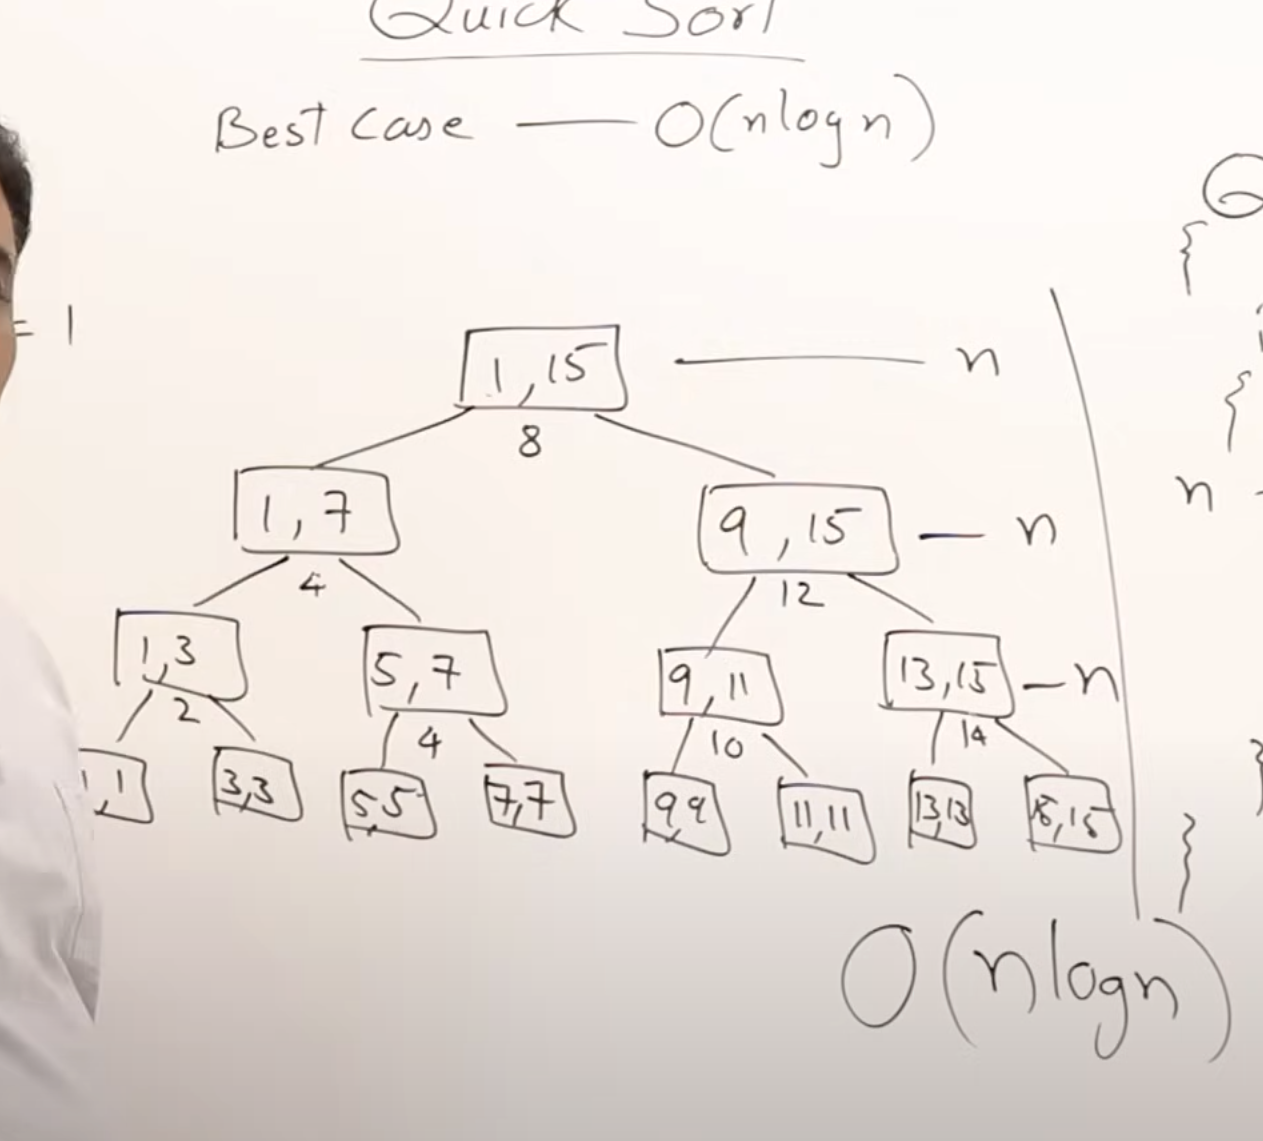 Quick Sort
Best Case — O(nlogn)
= 1
{
1,15 — n
8
{
1,7
9,15 — n
n
4
12
1,3
5,7
9,11
13,15 — n
2
4
10
14
,1
3,3
5,5
7,7
9,9
11,11
13,13
15,15
}
O(nlogn)